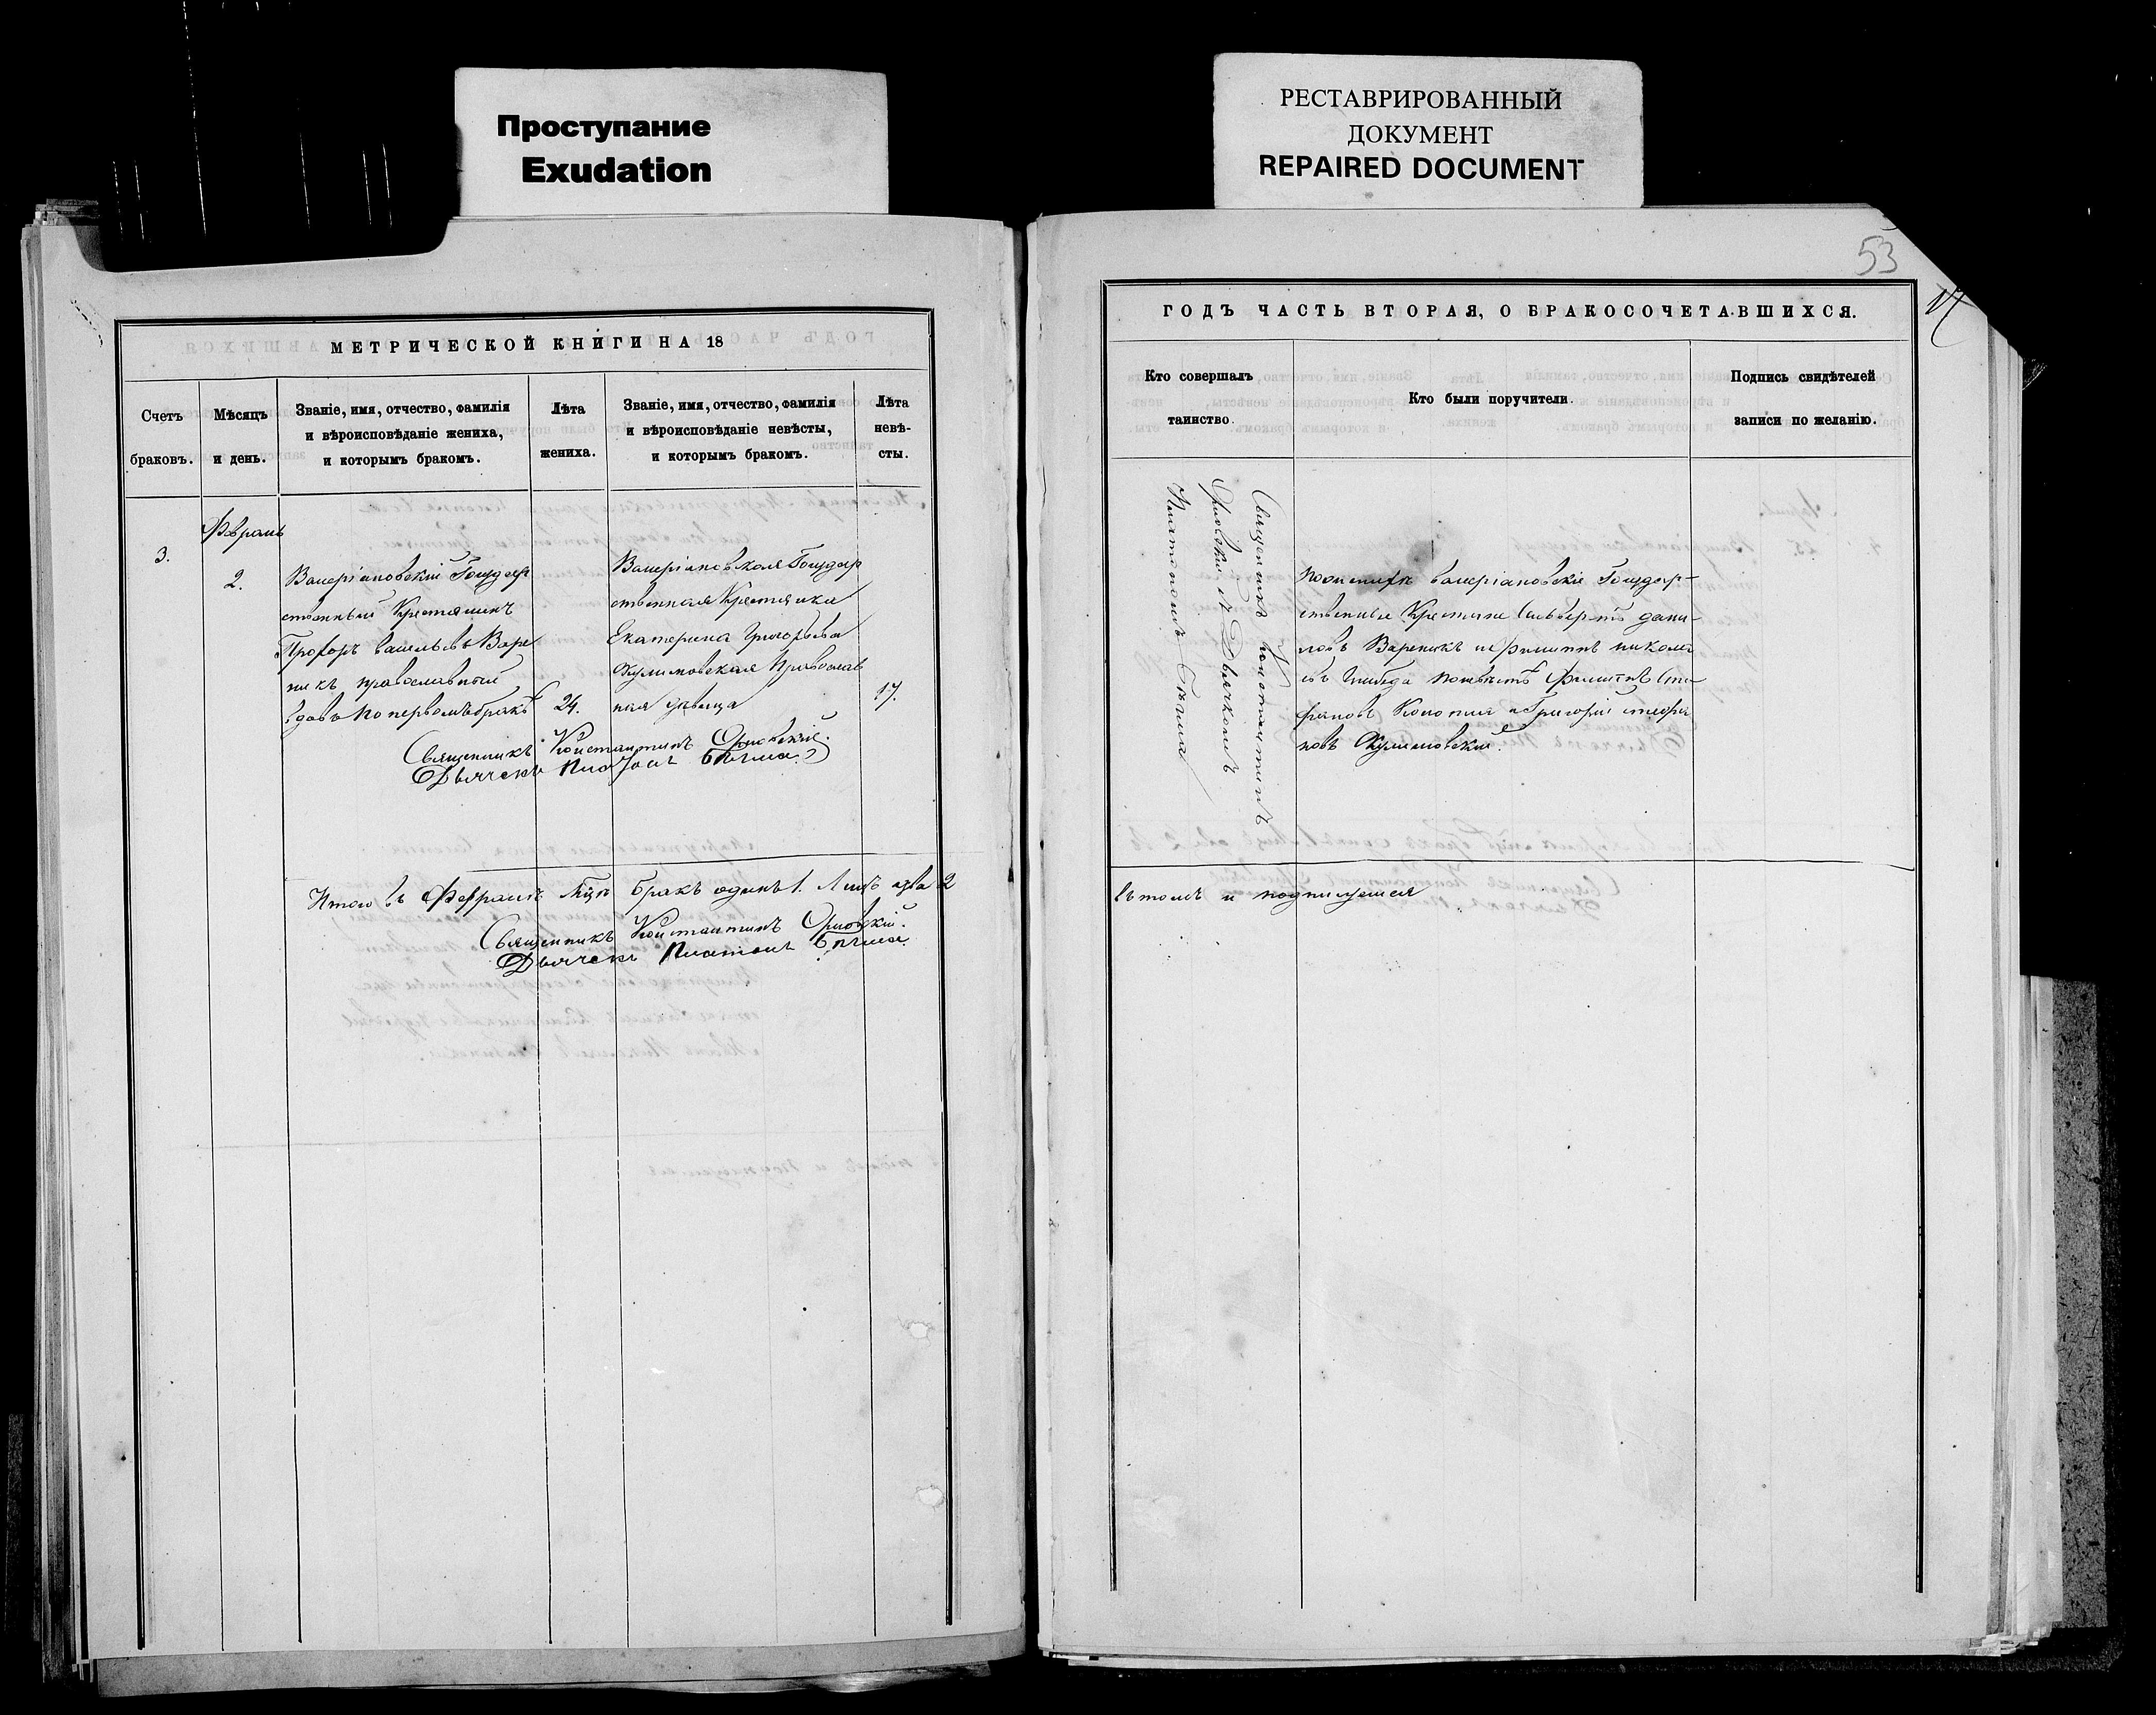 Проступание
Exudation
РЕСТАВРИРОВАННЫЙ
ДОКУМЕНТ
REPAIRED DOCUMENT
МЕТРИЧЕСКОЙ КНИГИ НА 18
Счетъ
браковъ.
Мѣсяцъ
и день.
Званіе, имя, отчество, фамилія
и вѣроисповѣданіе жениха,
и которымъ бракомъ.
Лѣта
жениха.
Званіе, имя, отчество, фамилія
и вѣроисповѣданіе невѣсты,
и которымъ бракомъ.
Лѣта
невѣ-
сты.
3.
Февраль
2.
Валеріановскій Государ
ственный Крестянинъ
Прохоръ васильевъ Варе
никъ православный
вдовъ по первомъ бракѣ
24.
Валеріановская Государ
ственная Крестянка
Екатерина Григорьева
Кулиновская Православ
ная дѣвица
17.
Священникъ Константинъ Орловскій.
Дьячекъ Платонъ Бѣгма
Итого въ Февралѣ мцѣ бракъ одинъ 1. Лицъ два 2
Священникъ Константинъ Орловскій.
Дьячекъ Платонъ Бѣгма.
53
ГОДЪ ЧАСТЬ ВТОРАЯ, О БРАКОСОЧЕТАВШИХСЯ.
Кто совершалъ
таинство.
Кто были поручители.
Подпись свидѣтелей
записи по желанію.
Священникъ Константинъ
Орловскій съ Дьячкомъ
Платономъ Бѣгма
По женихѣ валеріановскіе Государ-
ственные Крестяне Сильвестръ дани-
ловъ Вареникъ и Филиппъ никола
евъ по невѣстѣ Филиппъ Сте-
фановъ и Григорій стефа
новъ Кулиновскій.
въ томъ и подписуемся